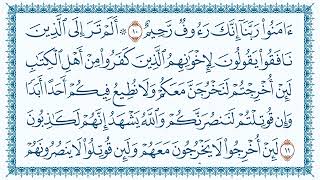 ءَامَنُوا۟ رَبَّنَآ إِنَّكَ رَءُوفٌ رَّحِيمٌ ١٠ ۞ أَلَمْ تَرَ إِلَى ٱلَّذِينَ
نَافَقُوا۟ يَقُولُونَ لِإِخْوَٰنِهِمُ ٱلَّذِينَ كَفَرُوا۟ مِنْ أَهْلِ ٱلْكِتَٰبِ
لَئِنْ أُخْرِجْتُمْ لَنَخْرُجَنَّ مَعَكُمْ وَلَا نُطِيعُ فِيكُمْ أَحَدًا أَبَدًا
وَإِن قُوتِلْتُمْ لَنَنصُرَنَّكُمْ وَٱللَّهُ يَشْهَدُ إِنَّهُمْ لَكَٰذِبُونَ
١١ لَئِنْ أُخْرِجُوا۟ لَا يَخْرُجُونَ مَعَهُمْ وَلَئِن قُوتِلُوا۟ لَا يَنصُرُونَهُمْ